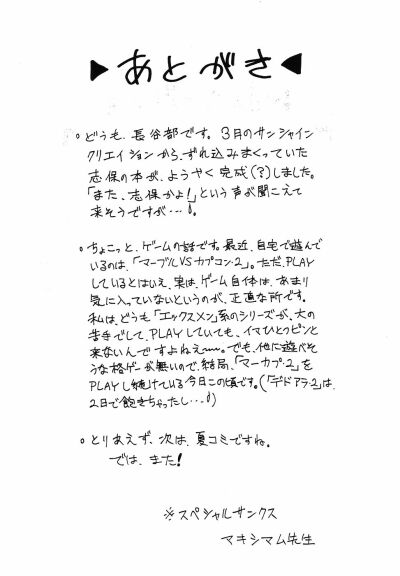 ▶あとがき◀
○どうも、長谷部です。3月のサンシャイン
クリエイションから、ずれ込みまくっていた
志保の本が、ようやく完成(?)しました。
「また、志保かよ!」という声が聞こえて
来そうですが…。
○ちょこっと、ゲームの話です。最近、自宅で遊んで
いるのは、「マーブルVSカプコン・2」。ただ、PLAY
しているとはいえ、実は、ゲーム自体は、あまり
気に入っていないというのが、正直な所です。
私は、どうも「エックスメン」系のシリーズが、大の
苦手でして、PLAYしていても、イマひとつピンと
来ないんですよねえ〜。でも、他に遊べそ
うな格ゲーが無いので、結局、「マーカプ・2」を
PLAYし続けている今日この頃です。(「デドアラ・2」は、
2日で飽きちゃったし…)
○とりあえず、次は、夏コミですね。
では、また!
※スペシャルサンクス
マキシマム先生